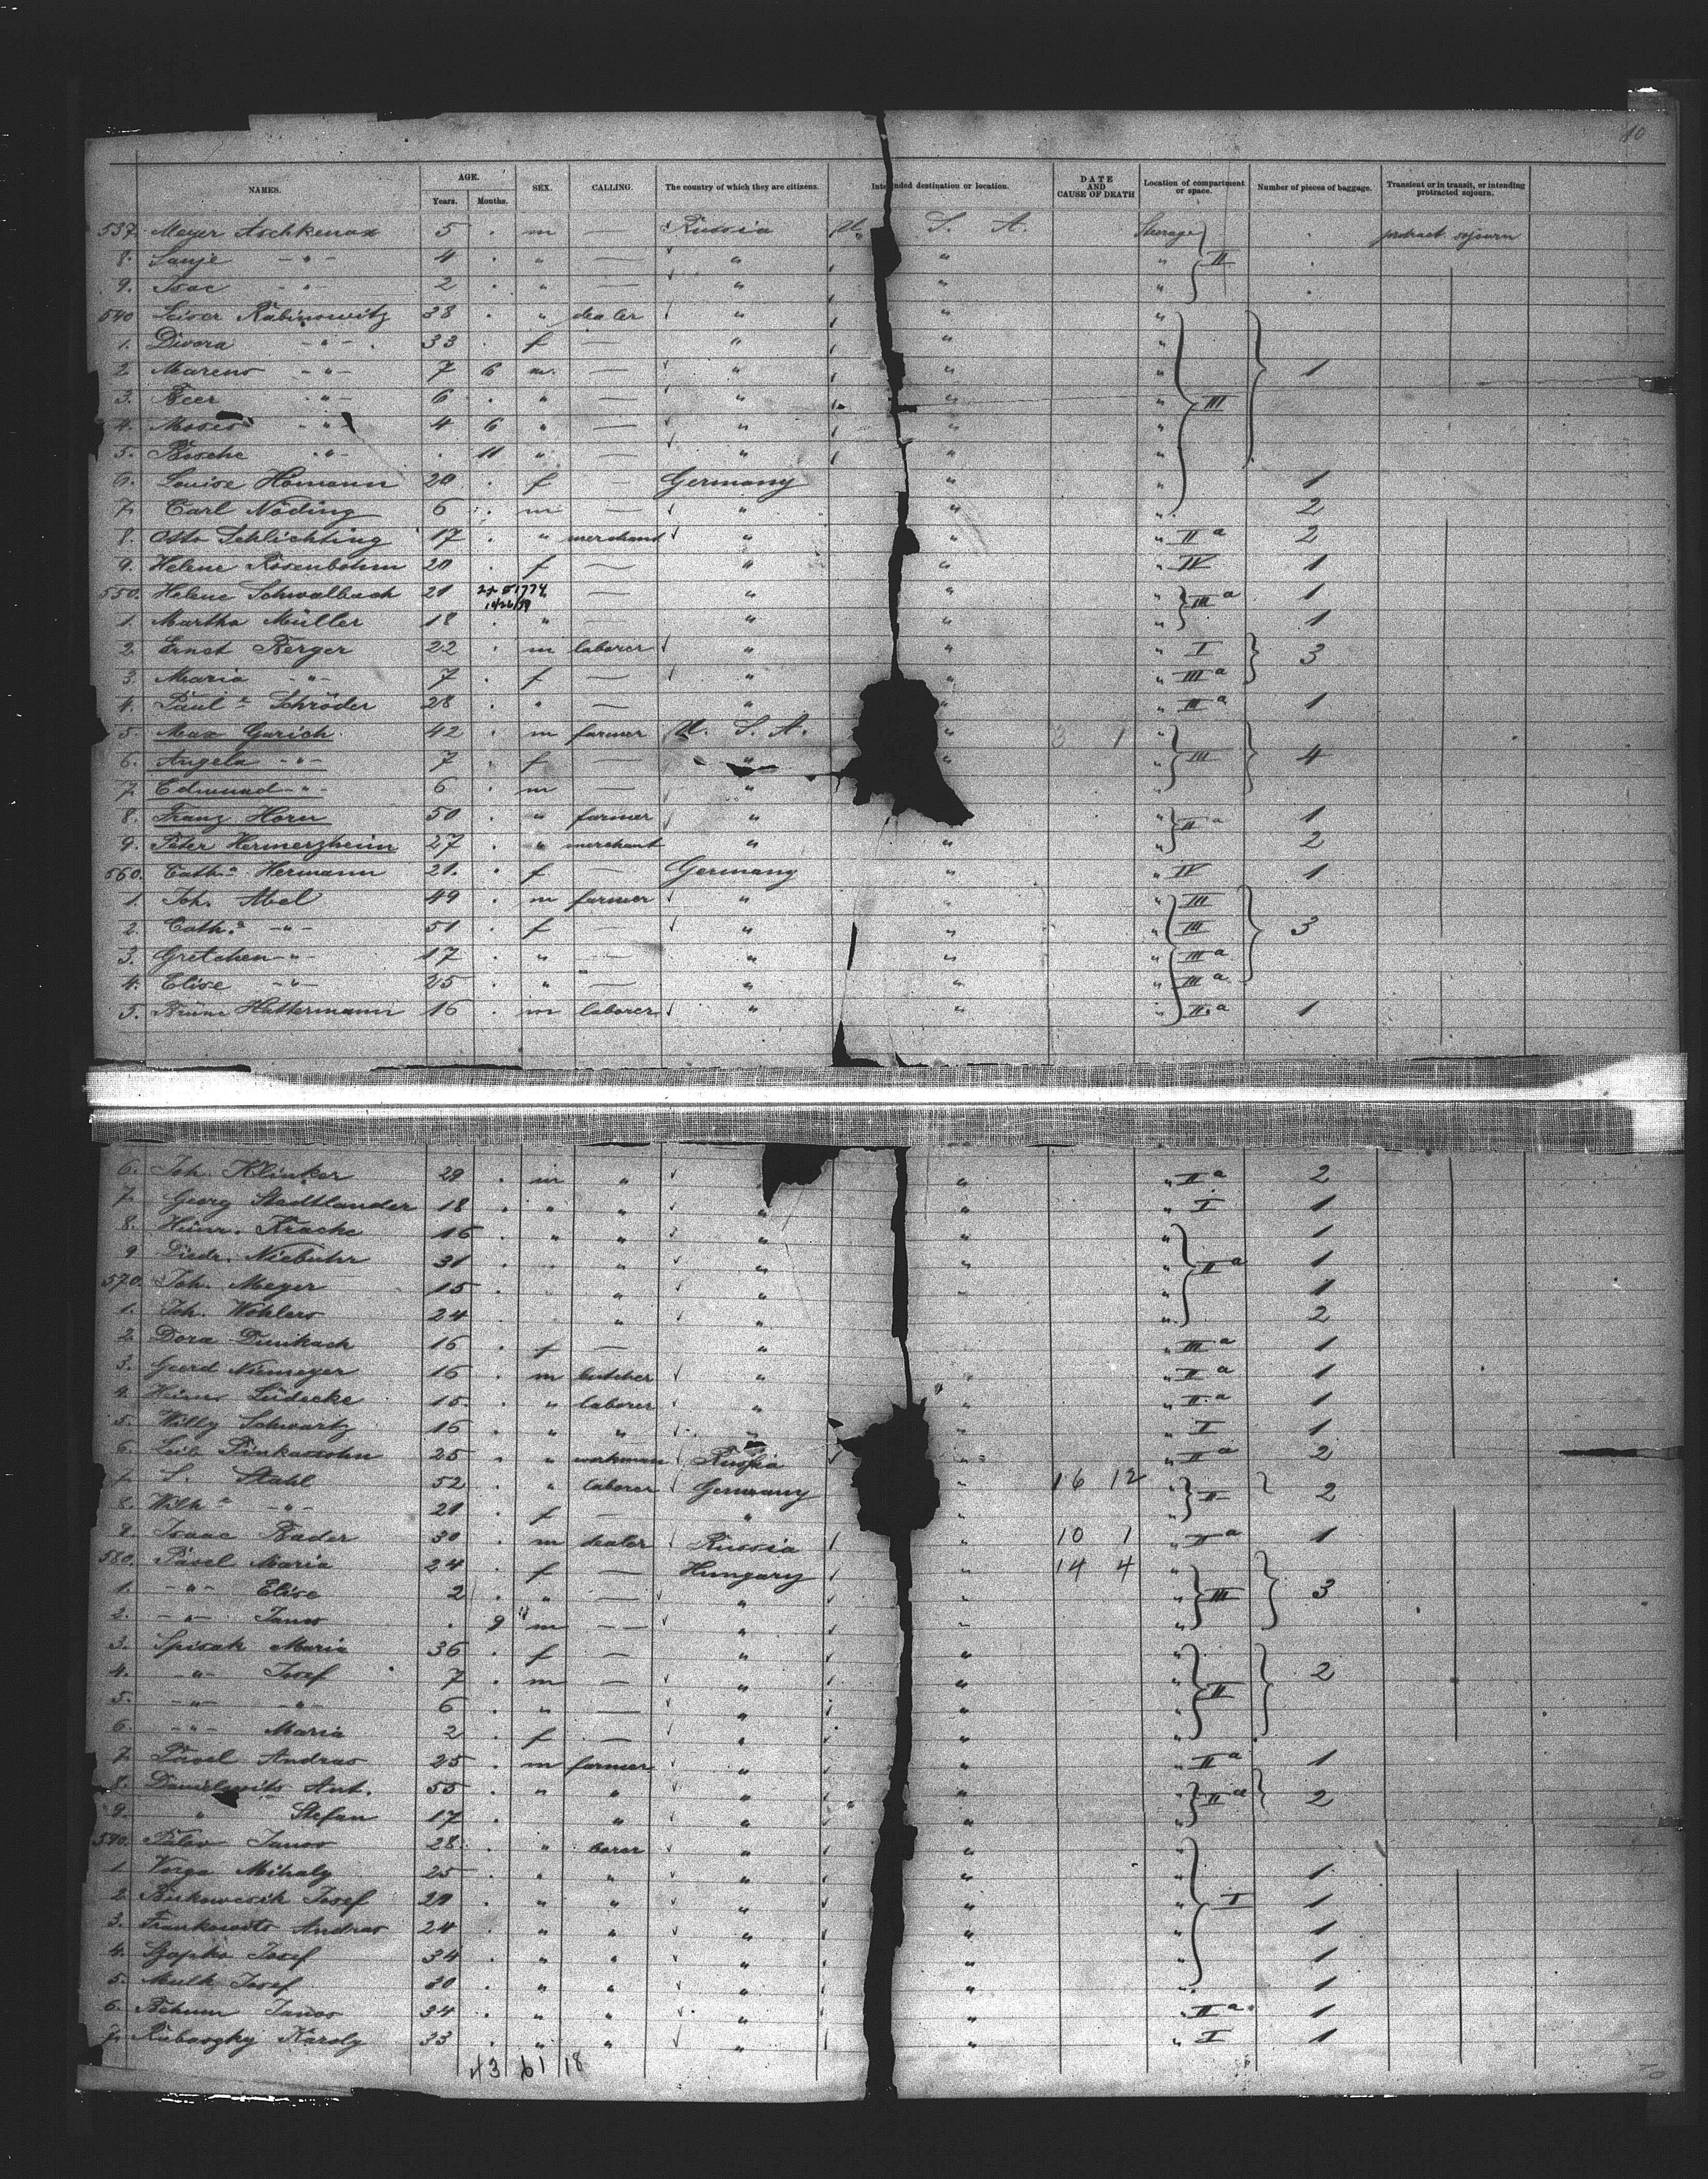 10
NAMES. AGE. Years. Months. SEX. CALLING. The country of which they are citizens. Intended destination or location. DATE AND CAUSE OF DEATH Location of compartment or space. Number of pieces of baggage. Transient or in transit, or intending protracted sojourn.
537. Meyer Aschkenas 5 . m — Russia U. S. A. Steerage } II . protract. sojourn
8. 4 . " — " " "
9. Isac -"- 2 . " — " " "
540 Leiser Rabinowitz 38 . " dealer " " "
1. Divora -"- 33 . f — " " "
2 -"- 7 6 m. — " " " 1
3. Beer -"- 6 . " — " " " III
4. Moses -"- 4 6 " — " " "
5. -"- . 11 " — " " "
6. Louise Homann 20 . f — Germany " " 1
7. Carl Nöding 6 . m — " " " 2
8. Otto Schlichting 17 . " merchant " " " II a 2
9. Helene Rosenbohm 20 . f — " " " IV 1
550. Helene Schwalbach 21 — " " " III a 1
1. Martha Müller 18 . " — " " " 1
2. Ernst Berger 22 . m laborer " " " I 3
3. Maria -"- 7 . f — " " " III a
4. Paul a Schröder 28 . " — " " " III a 1
5. Max Garich 42 . m farmer U. S. A. " 3 1 "
6. Angela -"- 7 . f — " " " III 4
7. Edmund -"- 6 . m — " "
8. Franz Horn 50 . " farmer " " II a 1
9. Peter Hermerzheim 27 . " merchant " " " 2
560. Cath.a Hermann 21. . f — Germany " " IV 1
1. Joh. Abel 49 . m farmer " " " III
2. Cath.a -"- 51 . f — " " " III 3
3. Gretchen -"- 17 . " — " " " III a
4. Elise -"- 25 . " — " " " III a
5. Hattermann 16 . m laborer " " " II a 1
6. Joh. Klinker 29 . m " " " II a 2
7. Georg Stadtlander 18 . " " " " " I 1
8. Heinr. Kracke 16 . " " " " " 1
9. Diedr. Niebuhr 31 . " " " " " II a 1
570. Joh. Meyer 15 . " " " " " 1
1. Joh. Wohlers 24 . " " " " " 2
2. Dora 16 . f — " " III a 1
3. Gerd Niemeyer 16 . m butcher " " " II a 1
4. Heinr. Lüdecke 15. . " laborer " " " II a 1
5. Willy Schwartz 16 . " " " " I 1
6. Leib Pinkassohn 25 . " workman Russia " " II a 2
7. Stahl 52 . " laborer Germany " 16 12 " II 2
8. Wilh.a -"- 21 . f — " " "
9. Isaac Bader 30 . m dealer Russia " 10 1 " II a 1
580. Pavel Maria 24 . f — Hungary " 14 4 "
1. -"- Elise 2 . " — " " " III 3
2. -"- Janos . 9 m — " " "
3. Spisak Maria 36 . f — " " "
4. -"- Josef 7 . m — " " " 2
5. -"- -"- 6 . " — " " " II
6. -"- Maria 2 . f — " " "
7. Andras 25 . m farmer " " " II a 1
8. Ant. 55 . " " " " " II a 2
9. " Stefan 17 . " " " "
590. Janos 28 . " " " "
1. Varga Mihaly 25 . " " " " " 1
2. Josef 29 . " " " " " I 1
3. Frankowits Andras 24 . " " " " " 1
4. Josef 34 . " " " " " 1
5. Josef 30 . " " " " " 1
6. Janos 34 . " " " " " II a 1
7. Karoly 33 . " " " " " I 1
43 61 18